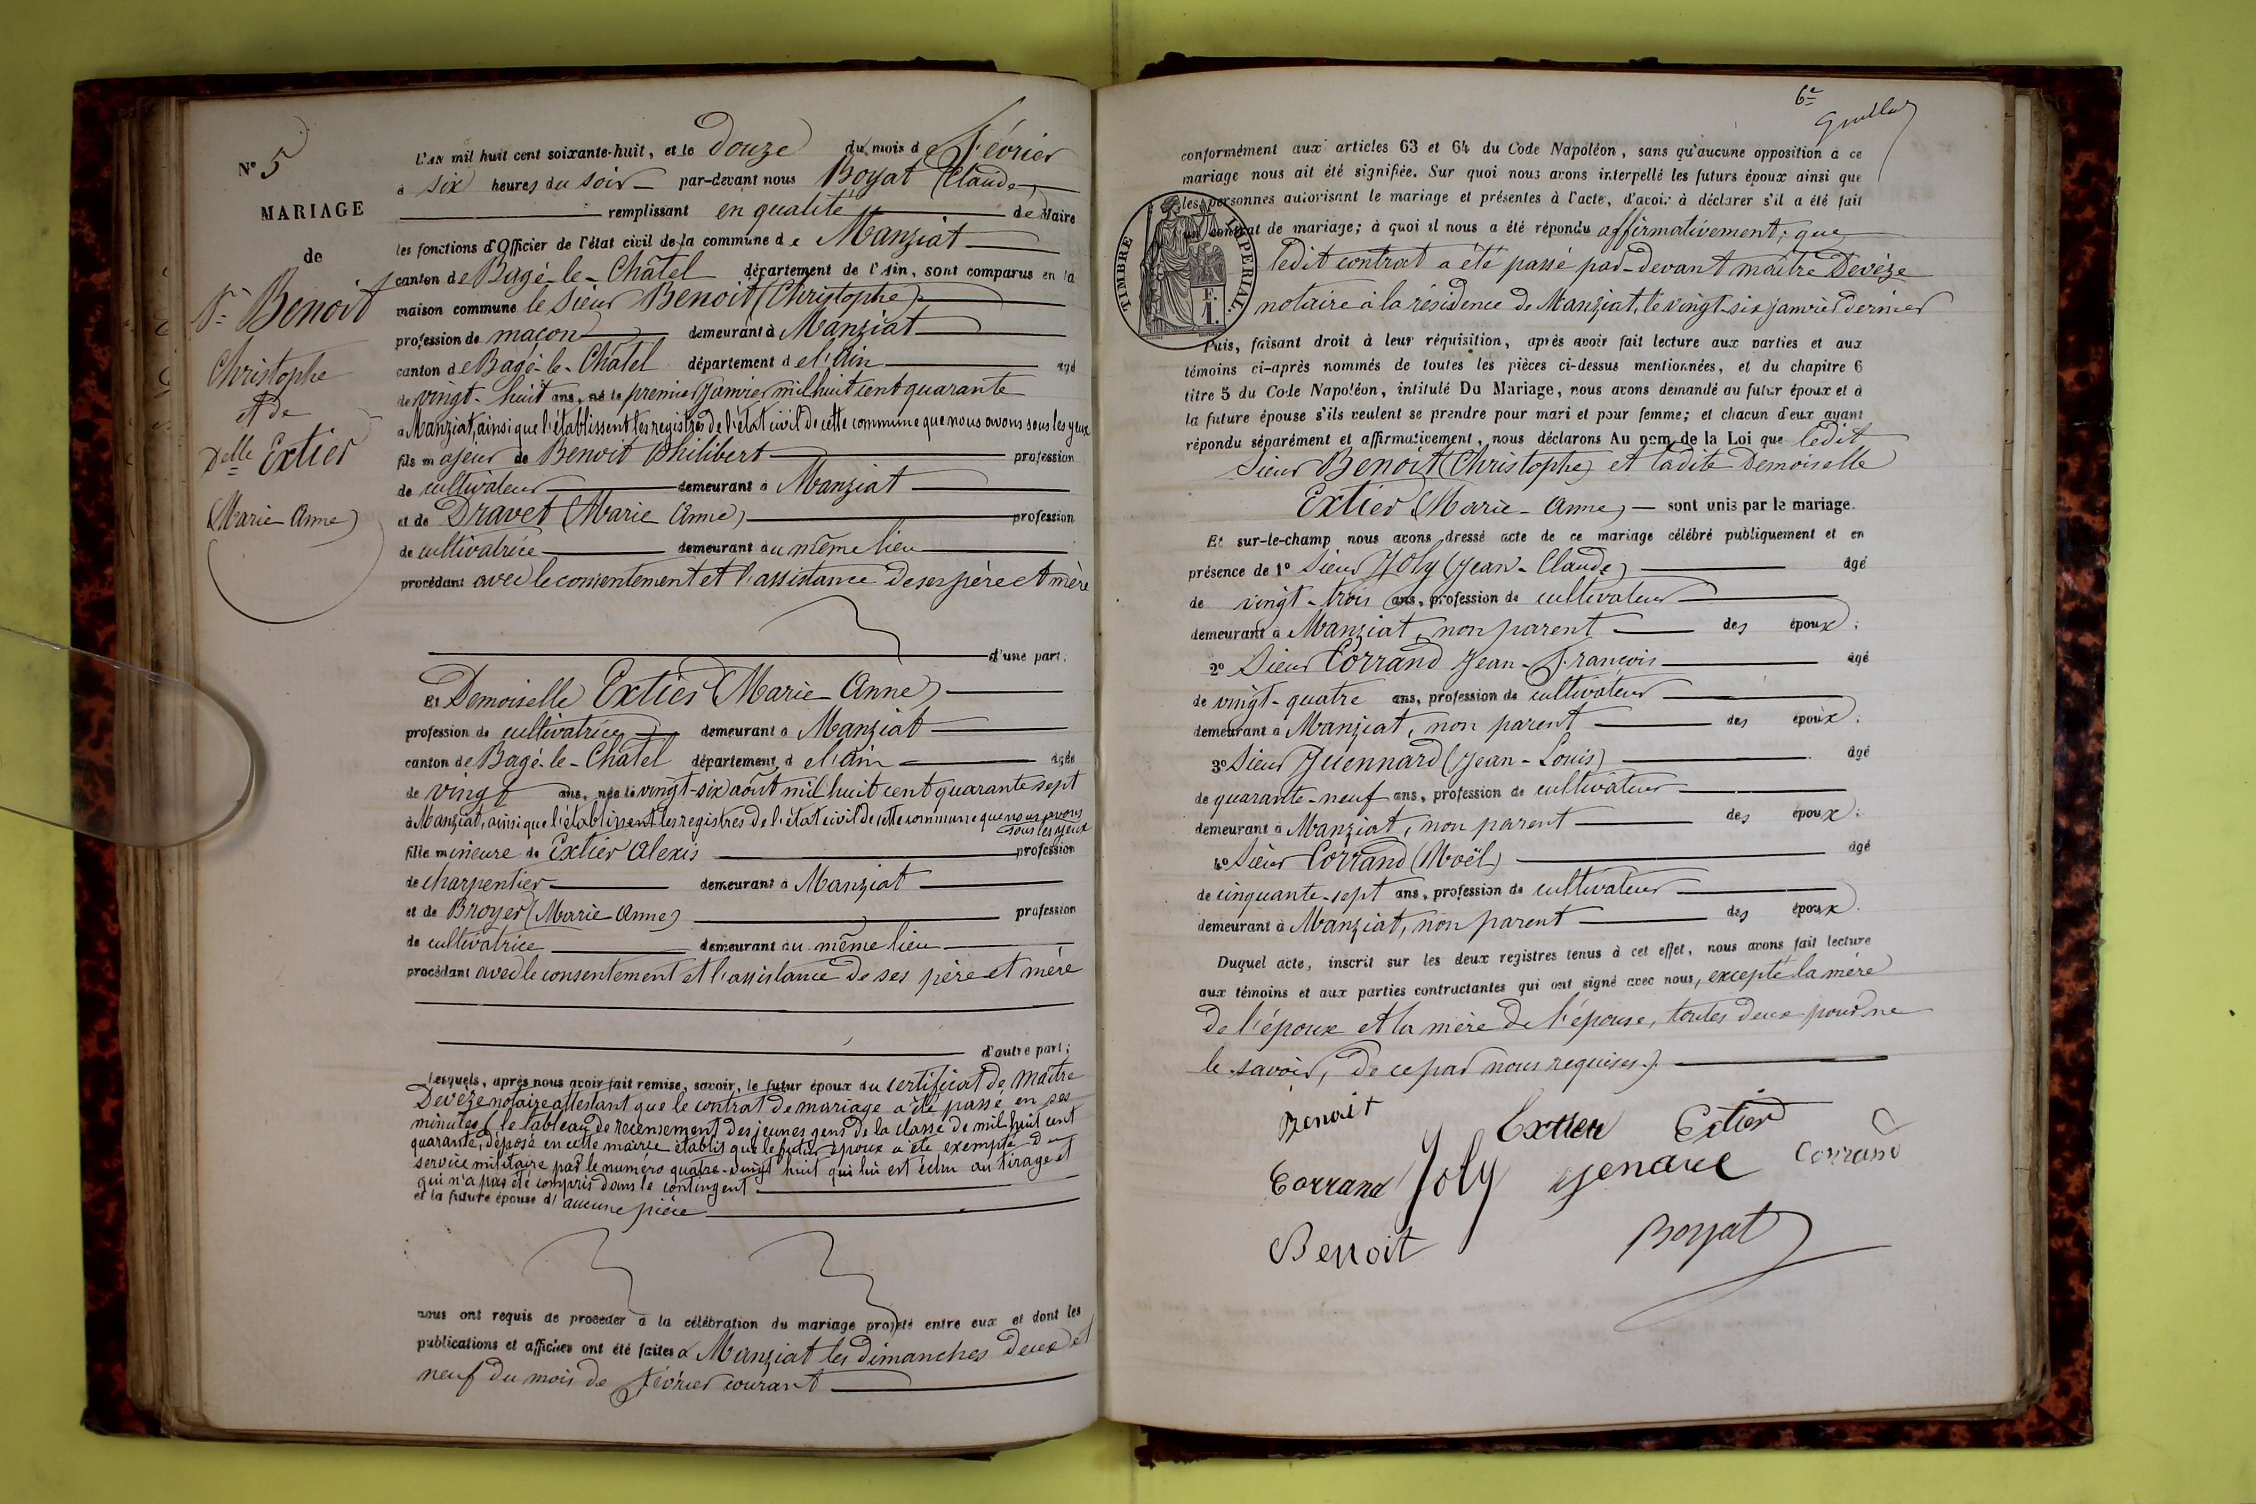 N° 5
MARIAGE
de
Sr Benoit
Christophe
et de
Delle Extier
(Marie Anne)
L'AN mil huit cent soixante-huit, et le douze du mois de Février
à six heures du soir par-devant nous Boyat Claude
remplissant en qualité de Maire
les fonctions d'Officier de l'état civil de la commune de Manziat
canton de Bagé-le-Châtel département de l'Ain, sont comparus en la
maison commune le sieur Benoit (Christophe)
profession de maçon demeurant à Manziat
canton de Bagé-le-Châtel département de l'Ain âgé
de vingt-huit ans, né le premier Janvier mil huit cent quarante
à Manziat, ainsi que l'établissent les registres de l'état civil de cette commune que nous avons sous les yeux
fils majeur de Benoit Philibert profession
de cultivateur demeurant à Manziat
et de Dravet (Marie Anne) profession
de cultivatrice demeurant au même lieu
procédant avec le consentement et l'assistance de ses père et mère
d'une part.
Et Demoiselle Extier (Marie-Anne)
profession de cultivatrice demeurant à Manziat
canton de Bagé-le-Châtel département de l'Ain âgée
de vingt ans, née le vingt-six août mil huit cent quarante sept
à Manziat, ainsi que l'établissent les registres de l'état civil de cette commune que nous avons
sous les yeux
fille mineure de Extier Alexis profession
de charpentier demeurant à Manziat
et de Broyer (Marie Anne) profession
de cultivatrice demeurant au même lieu
procédant avec le consentement et l'assistance de ses père et mère
d'autre part;
Lesquels, après nous avoir fait remise, savoir, le futur époux du certificat de Maître
Devèze notaire attestant que le contrat de mariage a été passé en ses
minutes (le tableau de recensement des jeunes gens de la classe de mil huit cent
quarante, déposé en cette mairie établit que le futur époux a été exempté du
service militaire par le numéro quatre-vingt huit qui lui est échu au tirage et
qui n'a pas été compris dans le contingent
et la future épouse d'aucune pièce
nous ont requis de procéder à la célébration du mariage projeté entre eux et dont les
publications et affiches ont été faites à Manziat les dimanches deux et
neuf du mois de Février courant
6e
conformément aux articles 63 et 64 du Code Napoléon, sans qu'aucune opposition à ce
mariage nous ait été signifiée. Sur quoi nous avons interpellé les futurs époux ainsi que
les personnes autorisant le mariage et présentes à l'acte, d'avoir à déclarer s'il a été fait
contrat de mariage; à quoi il nous a été répondu affirmativement; que
TIMBRE IMPERIAL
1 F.
ledit contrat a été passé par-devant maître Devèze
notaire à la résidence de Manziat, le vingt-six janvier dernier
Puis, faisant droit à leur réquisition, après avoir fait lecture aux parties et aux
témoins ci-après nommés de toutes les pièces ci-dessus mentionnées, et du chapitre 6
titre 5 du Code Napoléon, intitulé Du Mariage, nous avons demandé au futur époux et à
la future épouse s'ils veulent se prendre pour mari et pour femme; et chacun d'eux ayant
répondu séparément et affirmativement, nous déclarons Au nom de la Loi que ledit
Sieur Benoit (Christophe) et ladite Demoiselle
Extier (Marie-Anne) sont unis par le mariage.
Et sur-le-champ nous avons dressé acte de ce mariage célébré publiquement et en
présence de 1° Sieur Joly (Jean-Claude) âgé
de vingt-trois ans, profession de cultivateur
demeurant à Manziat, non parent des époux;
2° Sieur Corrand Jean-François âgé
de vingt-quatre ans, profession de cultivateur
demeurant à Manziat, non parent des époux;
3° Sieur Juennard (Jean-Louis) âgé
de quarante-neuf ans, profession de cultivateur
demeurant à Manziat, non parent des époux;
4° Sieur Corrand (Noël) âgé
de cinquante-sept ans, profession de cultivateur
demeurant à Manziat, non parent des époux.
Duquel acte, inscrit sur les deux registres tenus à cet effet, nous avons fait lecture
aux témoins et aux parties contractantes qui ont signé avec nous, excepté la mère
de l'époux et la mère de l'épouse, toutes deux pour ne
le savoir, de ce par nous requises.
Benoit Extier Extier
Corrand Joly Corrand
Benoit Boyat